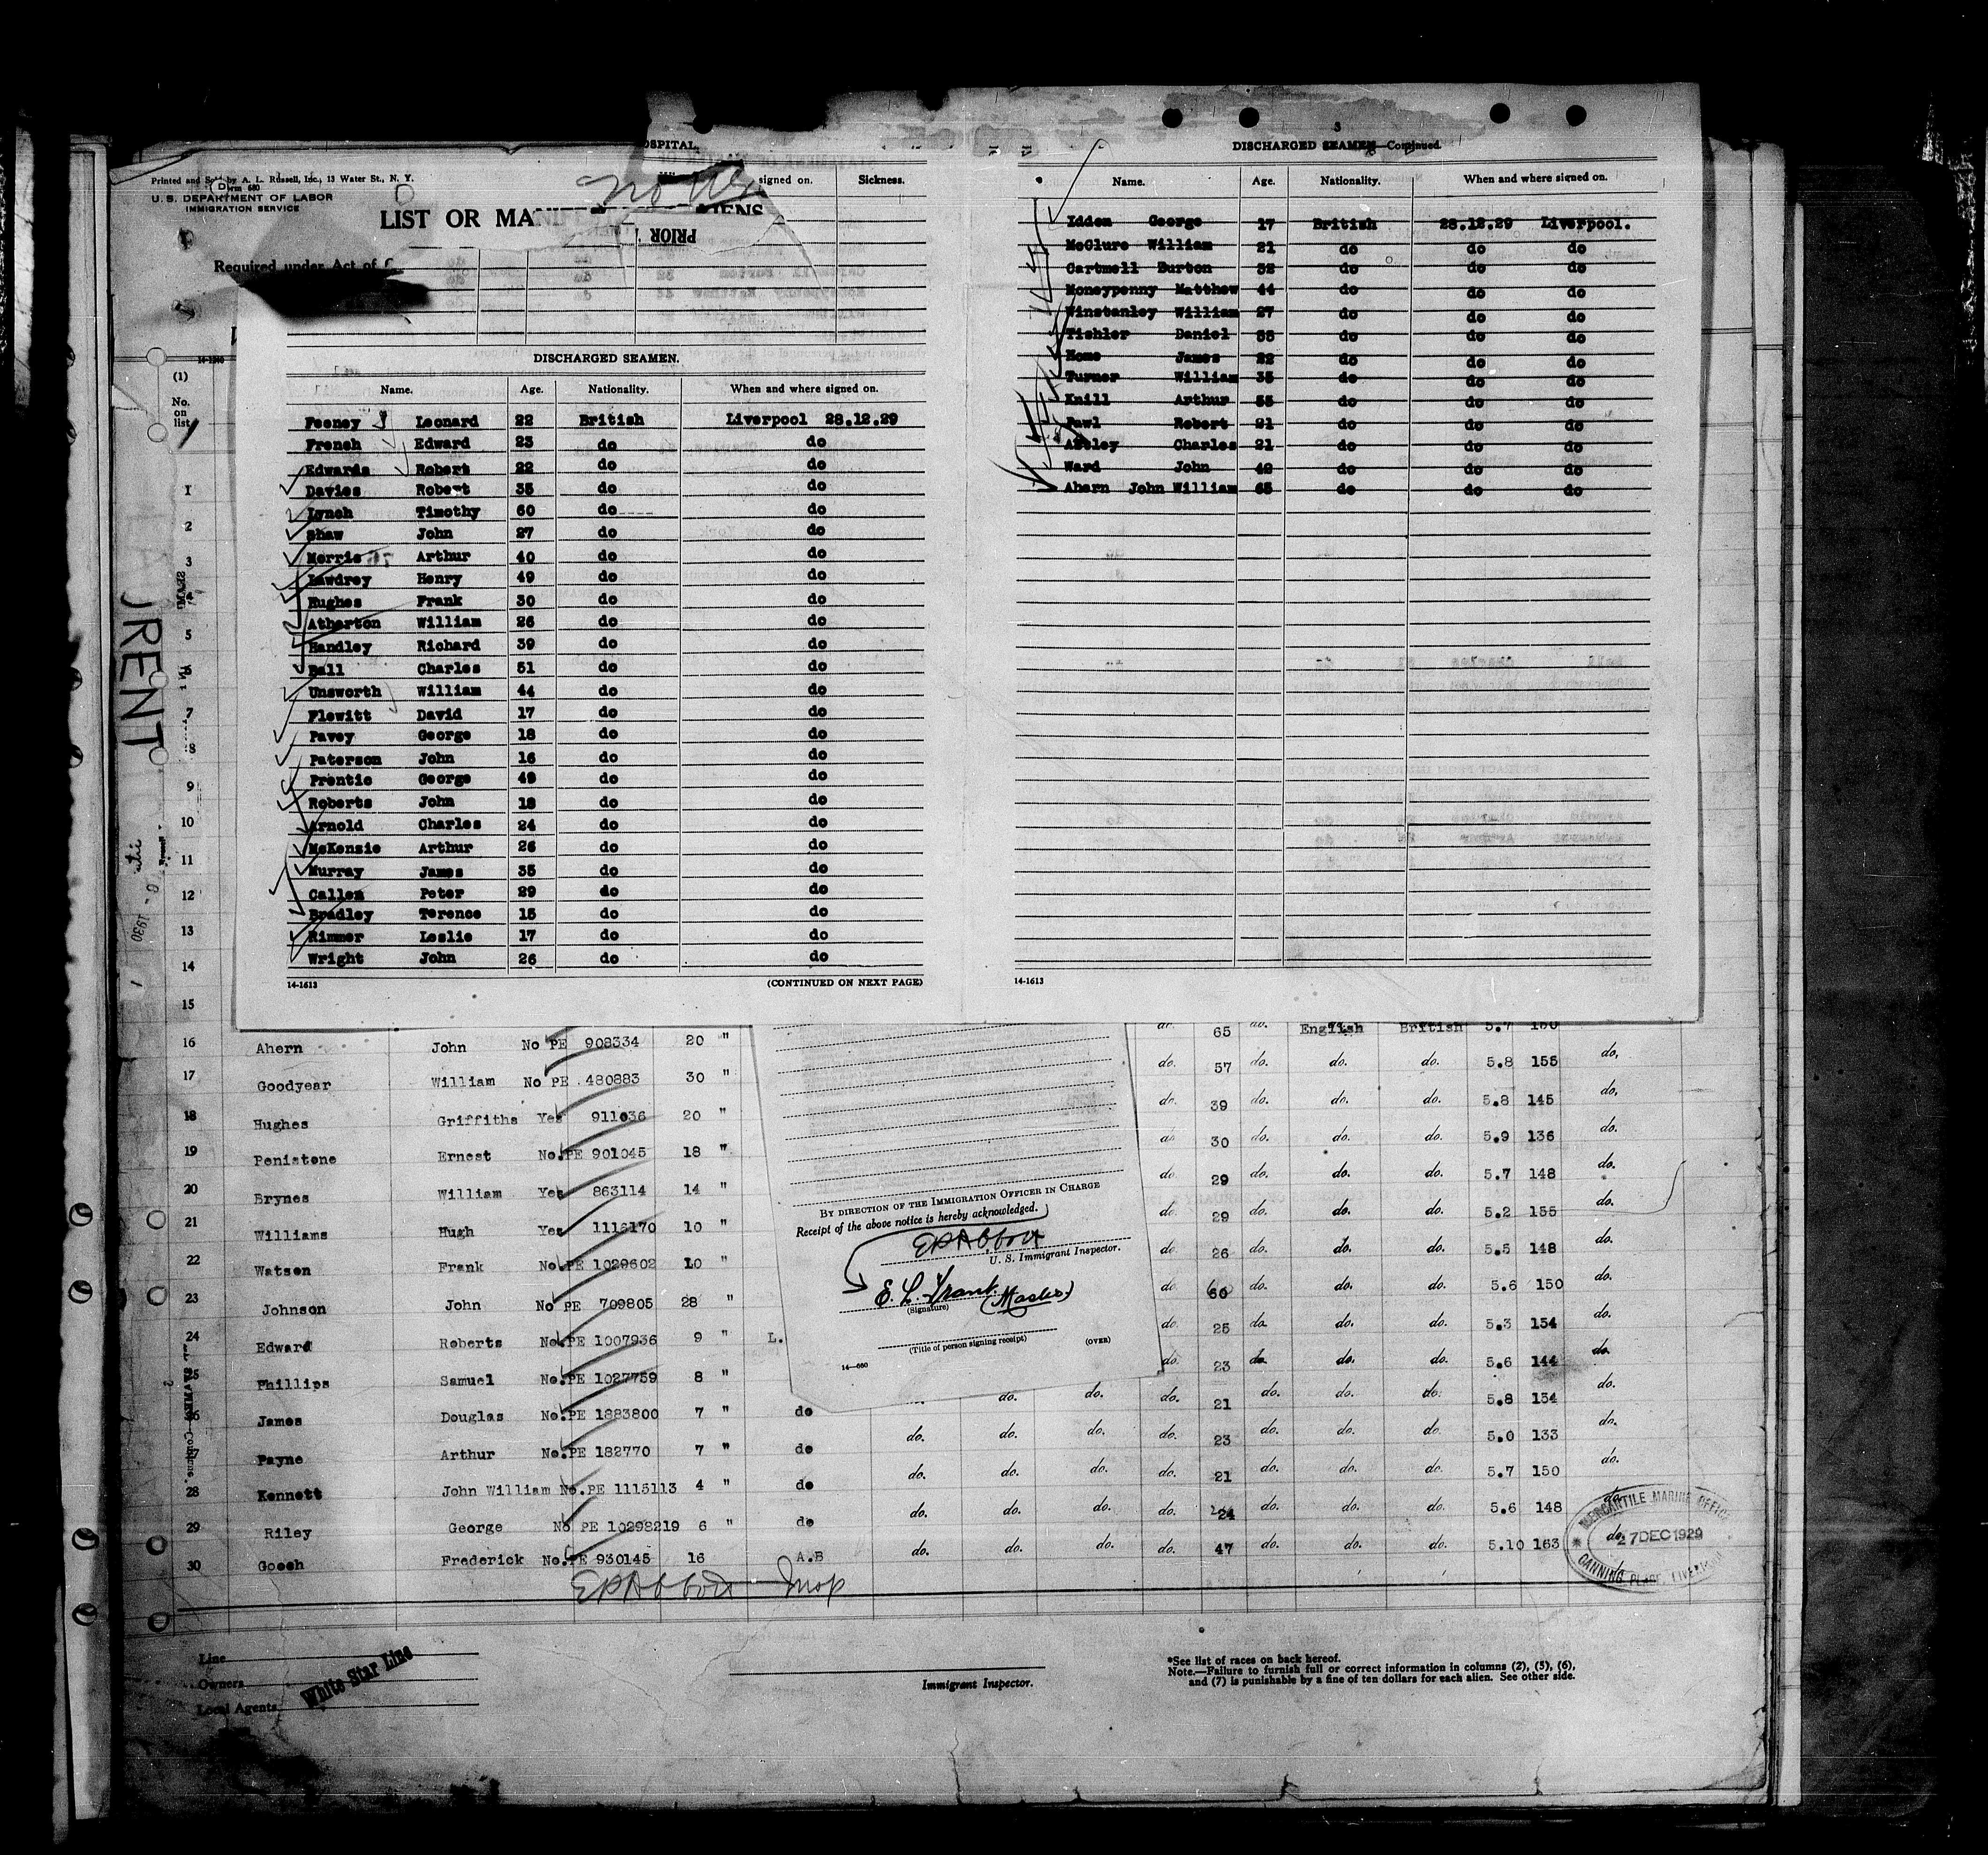 Printed and Sold by A. L. Russell, Inc., 13 Water St., N. Y.
Form 680
U. S. DEPARTMENT OF LABOR
IMMIGRATION SERVICE
LIST OR MANI
IENS
PRIOR
Required under Act of
14-1240
(1)
No.
on
list
OSPITAL.
signed on. Sickness.
DISCHARGED SEAMEN.
Name. Age. Nationality. When and where signed on.
Feeney Leonard 22 British Liverpool 28.12.29
French Edward 23 do do
Edwards Robert 22 do do
Davies Robert 35 do do
Lynch Timothy 60 do do
Shaw John 27 do do
Morris Arthur 40 do do
Lawdrey Henry 49 do do
Hughes Frank 30 do do
Atherton William 26 do do
Handley Richard 39 do do
Ball Charles 51 do do
Unsworth William 44 do do
Flewitt David 17 do do
Pavey George 18 do do
Paterson John 16 do do
Prentic George 49 do do
Roberts John 18 do do
Arnold Charles 24 do do
McKenzie Arthur 26 do do
Murray James 35 do do
Callen Peter 29 do do
Bradley Terence 15 do do
Rimmer Leslie 17 do do
Wright John 26 do do
14-1613 (CONTINUED ON NEXT PAGE)
3
DISCHARGED SEAMEN—Continued.
Name. Age. Nationality. When and where signed on.
Iddon George 17 British 28.12.29 Liverpool.
McClure William 21 do do do
Cartmell Burton 32 do do do
Moneypenny Matthew 44 do do do
Winstanley William 27 do do do
Tishler Daniel 33 do do do
Home James 22 do do do
Turner William 35 do do do
Knill Arthur 55 do do do
Pawl Robert 21 do do do
Astley Charles 21 do do do
Ward John 42 do do do
Ahern John William 65 do do do
14-1613
RENT
1930
1
2
3
4
5
6
7
8
9
10
11
12
13
14
15
do. 65 do. English British 5.7 150
16 Ahern John No PE 908334 20 " do. 57 do. do. do. 5.8 155 do.
17 Goodyear William No PE 480883 30 " do. 39 do. do. do. 5.8 145 do.
18 Hughes Griffiths Yes 911036 20 " do. 30 do. do. do. 5.9 136 do.
19 Penistone Ernest No.PE 901045 18 " do. 29 do. do. do. 5.7 148 do.
20 Brynes William Yes 863114 14 " do. 29 do. do. do. 5.2 155 do.
21 Williams Hugh Yes 1116170 10 " do. 26 do. do. do. 5.5 148 do.
22 Watson Frank No.PE 1029602 10 " do. 60 do. do. do. 5.6 150 do.
23 Johnson John No PE 709805 28 " do. 25 do. do. do. 5.3 154 do.
24 Edward Roberts No.PE 1007936 9 " L. do. 23 do. do. do. 5.6 144 do.
25 Phillips Samuel No.PE 1027759 8 " do. do. do. 21 do. do. do. 5.8 154 do.
26 James Douglas No.PE 1883800 7 " do do. do. do. do. 23 do. do. do. 5.0 133 do.
27 Payne Arthur No.PE 182770 7 " do do. do. do. do. 21 do. do. do. 5.7 150 do.
28 Kennett John William No.PE 1115113 4 " do do. do. do. do. 24 do. do. do. 5.6 148 do.
29 Riley George No PE 10298219 6 " do do. do. do. do. 47 do. do. do. 5.10 163 do.
30 Gooch Frederick No.PE 930145 16 A.B
EPAbbott Insp
BY DIRECTION OF THE IMMIGRATION OFFICER IN CHARGE
Receipt of the above notice is hereby acknowledged.
EPAbbott
U. S. Immigrant Inspector.
E. L. Trant (Master)
(Signature)
(Title of person signing receipt) (OVER)
14—680
MERCANTILE MARINE OFFICE
27DEC1929
CANNING PLACE LIVERPOOL
Line
Owners
Local Agents
White Star Line
Immigrant Inspector.
*See list of races on back hereof.
Note.—Failure to furnish full or correct information in columns (2), (5), (6),
and (7) is punishable by a fine of ten dollars for each alien. See other side.